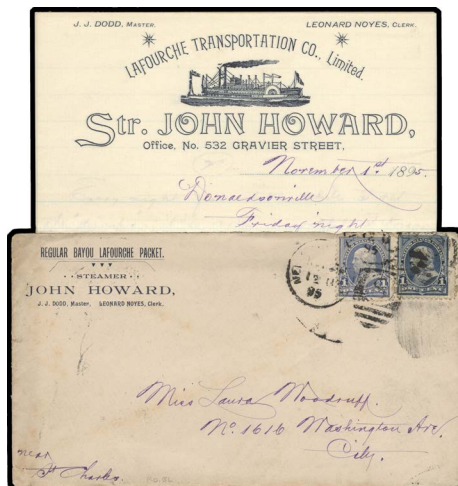 J. J. DODD, MASTER. LEONARD NOYES, CLERK.
LAFOURCHE TRANSPORTATION CO., Limited.
Str. JOHN HOWARD,
Office, No. 532 GRAVIER STREET.
November 1st 1895.
Donaldsonville
Friday night
REGULAR BAYOU LAFOURCHE PACKET.
STEAMER
JOHN HOWARD,
J. J. DODD, Master. LEONARD NOYES, Clerk.
95
1 1
ONE CENT
Miss Laura Woodruff.
No. 1616 Washington Ave,
City.
near
St Charles